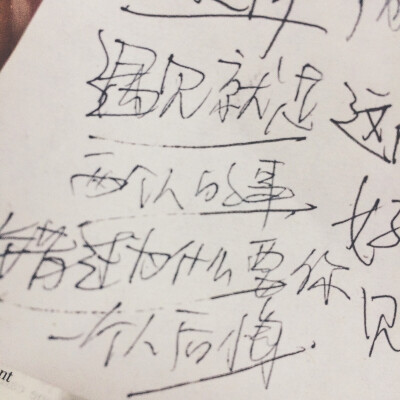 遇见就是
这
两个人的事
好
错过为什么要你
见
一个人后悔.
nt